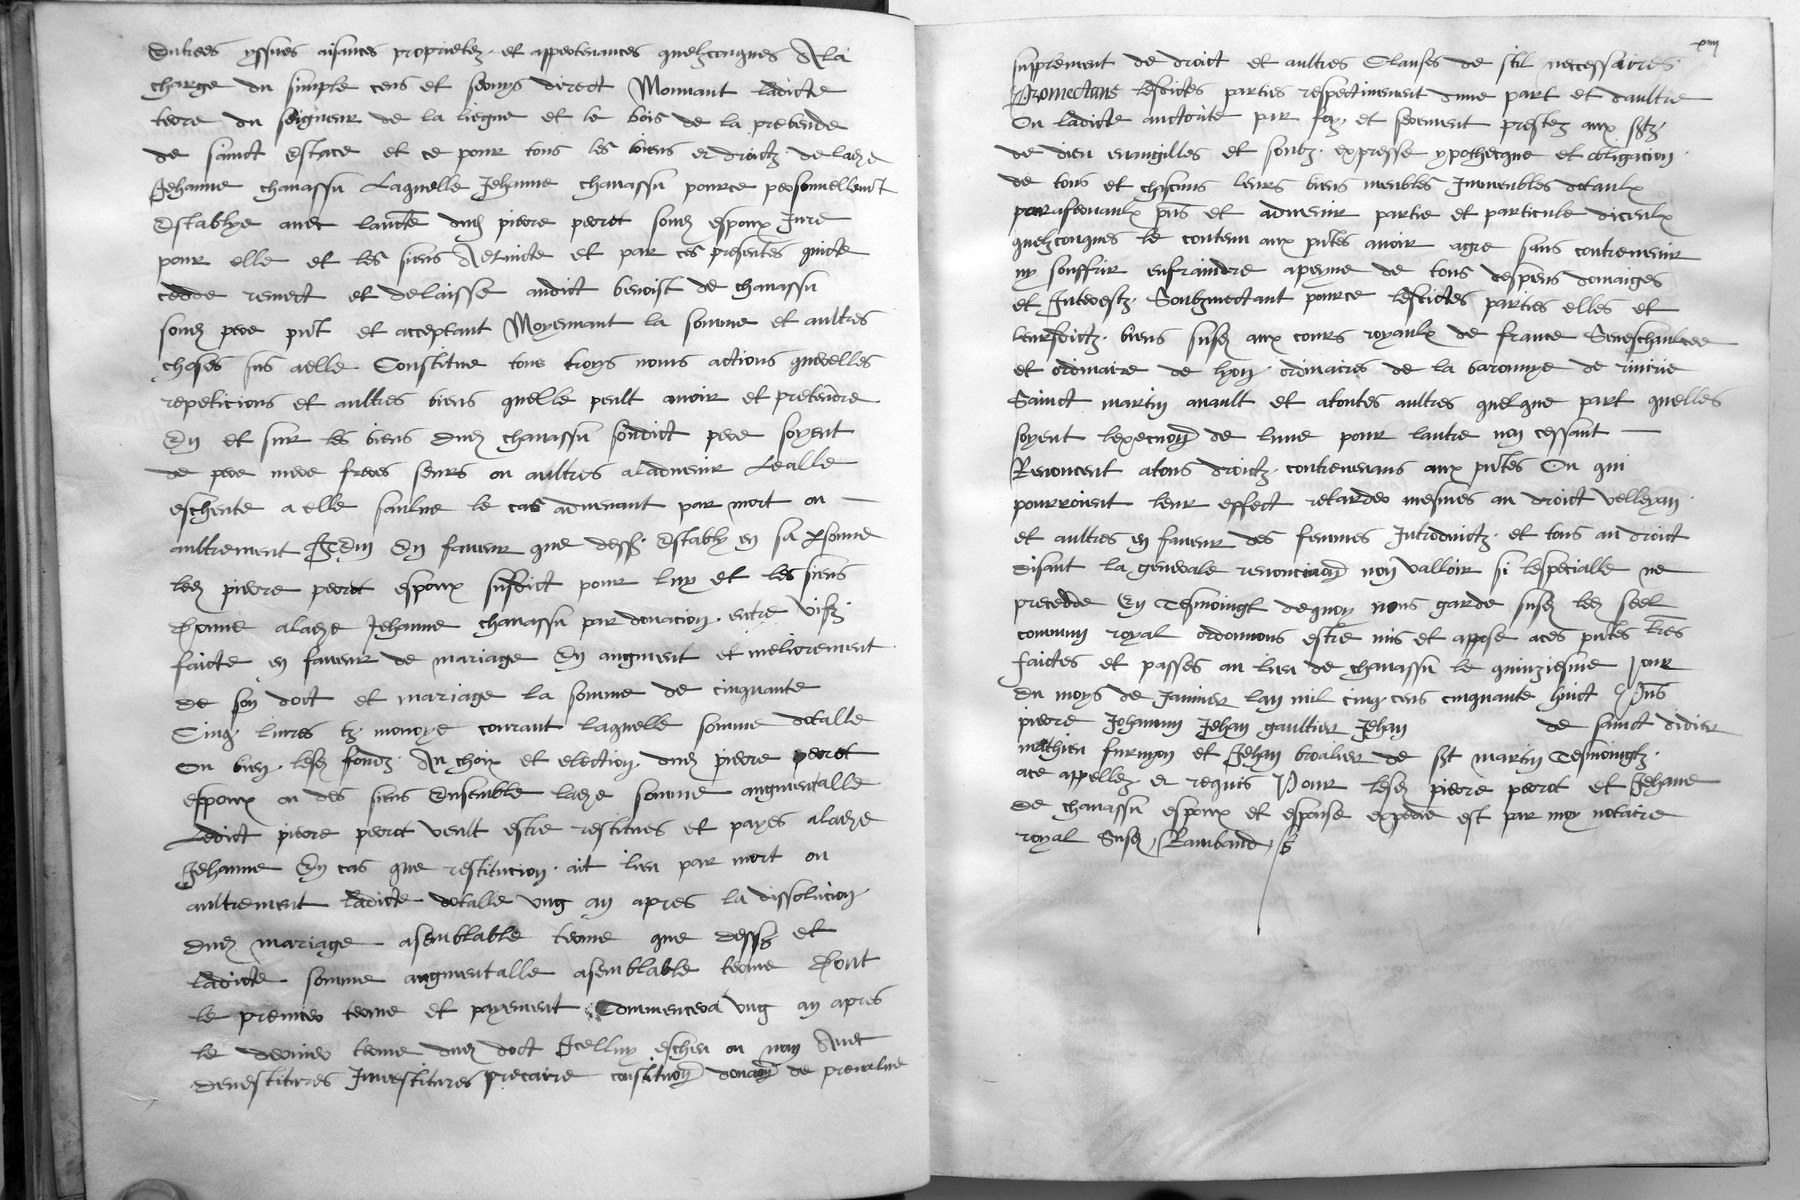 Entrees yssues aisances proprietez et appertenances quelzconques A la
charge du simple cens et servys direct Mouvant ladicte
terre du seigneur de la liegue et le bois de la prebende
de sainct Estace et ce pour tous les biens et droictz de ladce
Jehanne chanassu Laquelle Jehanne chanassu pource personnellemt
Establye avec laucte dudz pierre perrot sondz espoux Jure
pour elle et les siens Acquicte et par ces presentes quicte
cedde remect et delaisse audict benoist de chanassu
sondz pere pnt et acceptant Moyennant la somme et aultres
choses sus a elle Constitue tous troys noms actions querelles
repeticions et aultres biens quelle peult avoir et pretendre
En et sur les biens dudz chanassu sondict pere soyent
de pere mere freres seurs ou aultres aladvenir Lealle
escheute a elle saulve le cas advenant par mort ou
aultrement ITEM En faveur que dessz Establly en sa psonne
ledz pierre perrot espoux susdict pour luy et les siens
Donne aladce Jehanne chanassu par donacion entre vifz
faicte en faveur de mariage En augment et meliorement
de son doct et mariage la somme de cinquante
Cinq livres tz monoye courant laquelle somme dotalle
Ou bien lesdz fondz Au choix et election dudz pierre perrot
espoux ou des siens Ensemble ladce somme augmentalle
Ledict pierre perrot veult estre restitues et payes aladce
Jehanne En cas que restitucion ait lieu par mort ou
aultrement ladicte dotalle ung an apres la dissolucion
dudz mariage asemblable terme que dessz et
ladicte somme augmentalle asemblable terme Dont
le premier terme et payement Commencera ung an apres
le dernier terme dudz doct Icelluy escheu ou non Avec
devestitures Investitures precaire constitucon donacon de prevalue
supprement de droict et aultres Clauses de stil neccessaires
Promectans lesdictes parties respectivement dune part et daultre
Ou ladicte auctorite par foy et serement prestez aux sztz
de dieu evangilles et soubz expresse ypothecque et obligacion
de tous et chascuns leurs biens meubles Immeubles dotaulx
parafernaulx pns et advenir partie et particule diceulx
quelzconques le contenu aux pntes avoir agre sans contrevenir
ny souffrir enfraindre apeyne de tous despens domaiges
et Interestz Soubzmectant pource lesdictes parties elles et
leursdictz biens susdz aux cours royaulx de france Seneschaulcee
et ordinaire de lyon ordinaires de la baronnye de rivirie
Sainct martin anault et atoutes aultres quelque part quelles
soyent lexecucon de lune pour lautre non cessant
Renoncent atous droictz contrevenans aux pntes Ou qui
pourroient leur effect retarder mesmes au droict velleyan
et aultres en faveur des femmes Introduictz et tous au droict
disant la generale renonciacon non valloir si lespecialle ne
precedde En Tesmoingt dequoy nous garde susdz ledz seel
commun royal ordonnons estre mis et appse aces pntes lres
faictes et passes au lieu de chanassu le quinziesme Jour
du moys de Janvier lan mil cinq cens cinquante huict Pns
pierre Johannin Jehan gaultier Jehan de sainct didier
mathieu furnyon et Jehan broalier de szt martin Tesmoingtz
ace appellez et requis Pour lesdz pierre perrot et Jehane
de chanassu espoux et espouse expedie est par moy notaire
royal Susdz Rambaud